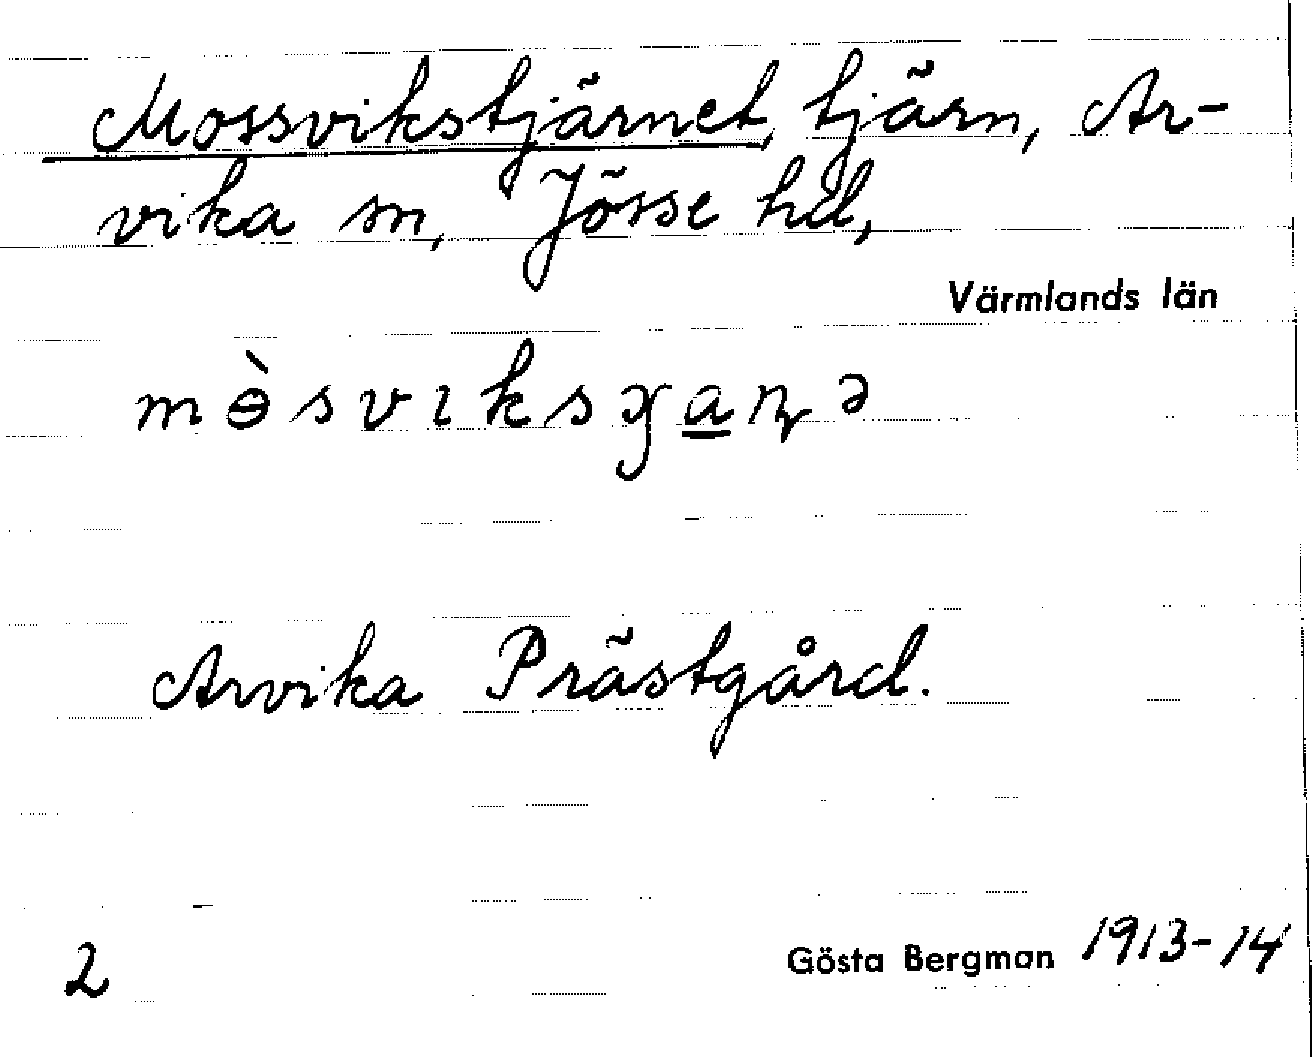 Mossvikstjärnet, tjärn, Ar-
vika sn, Jösse hd,
Värmlands län
Arvika Prästgård.
2
Gösta Bergman 1913-14